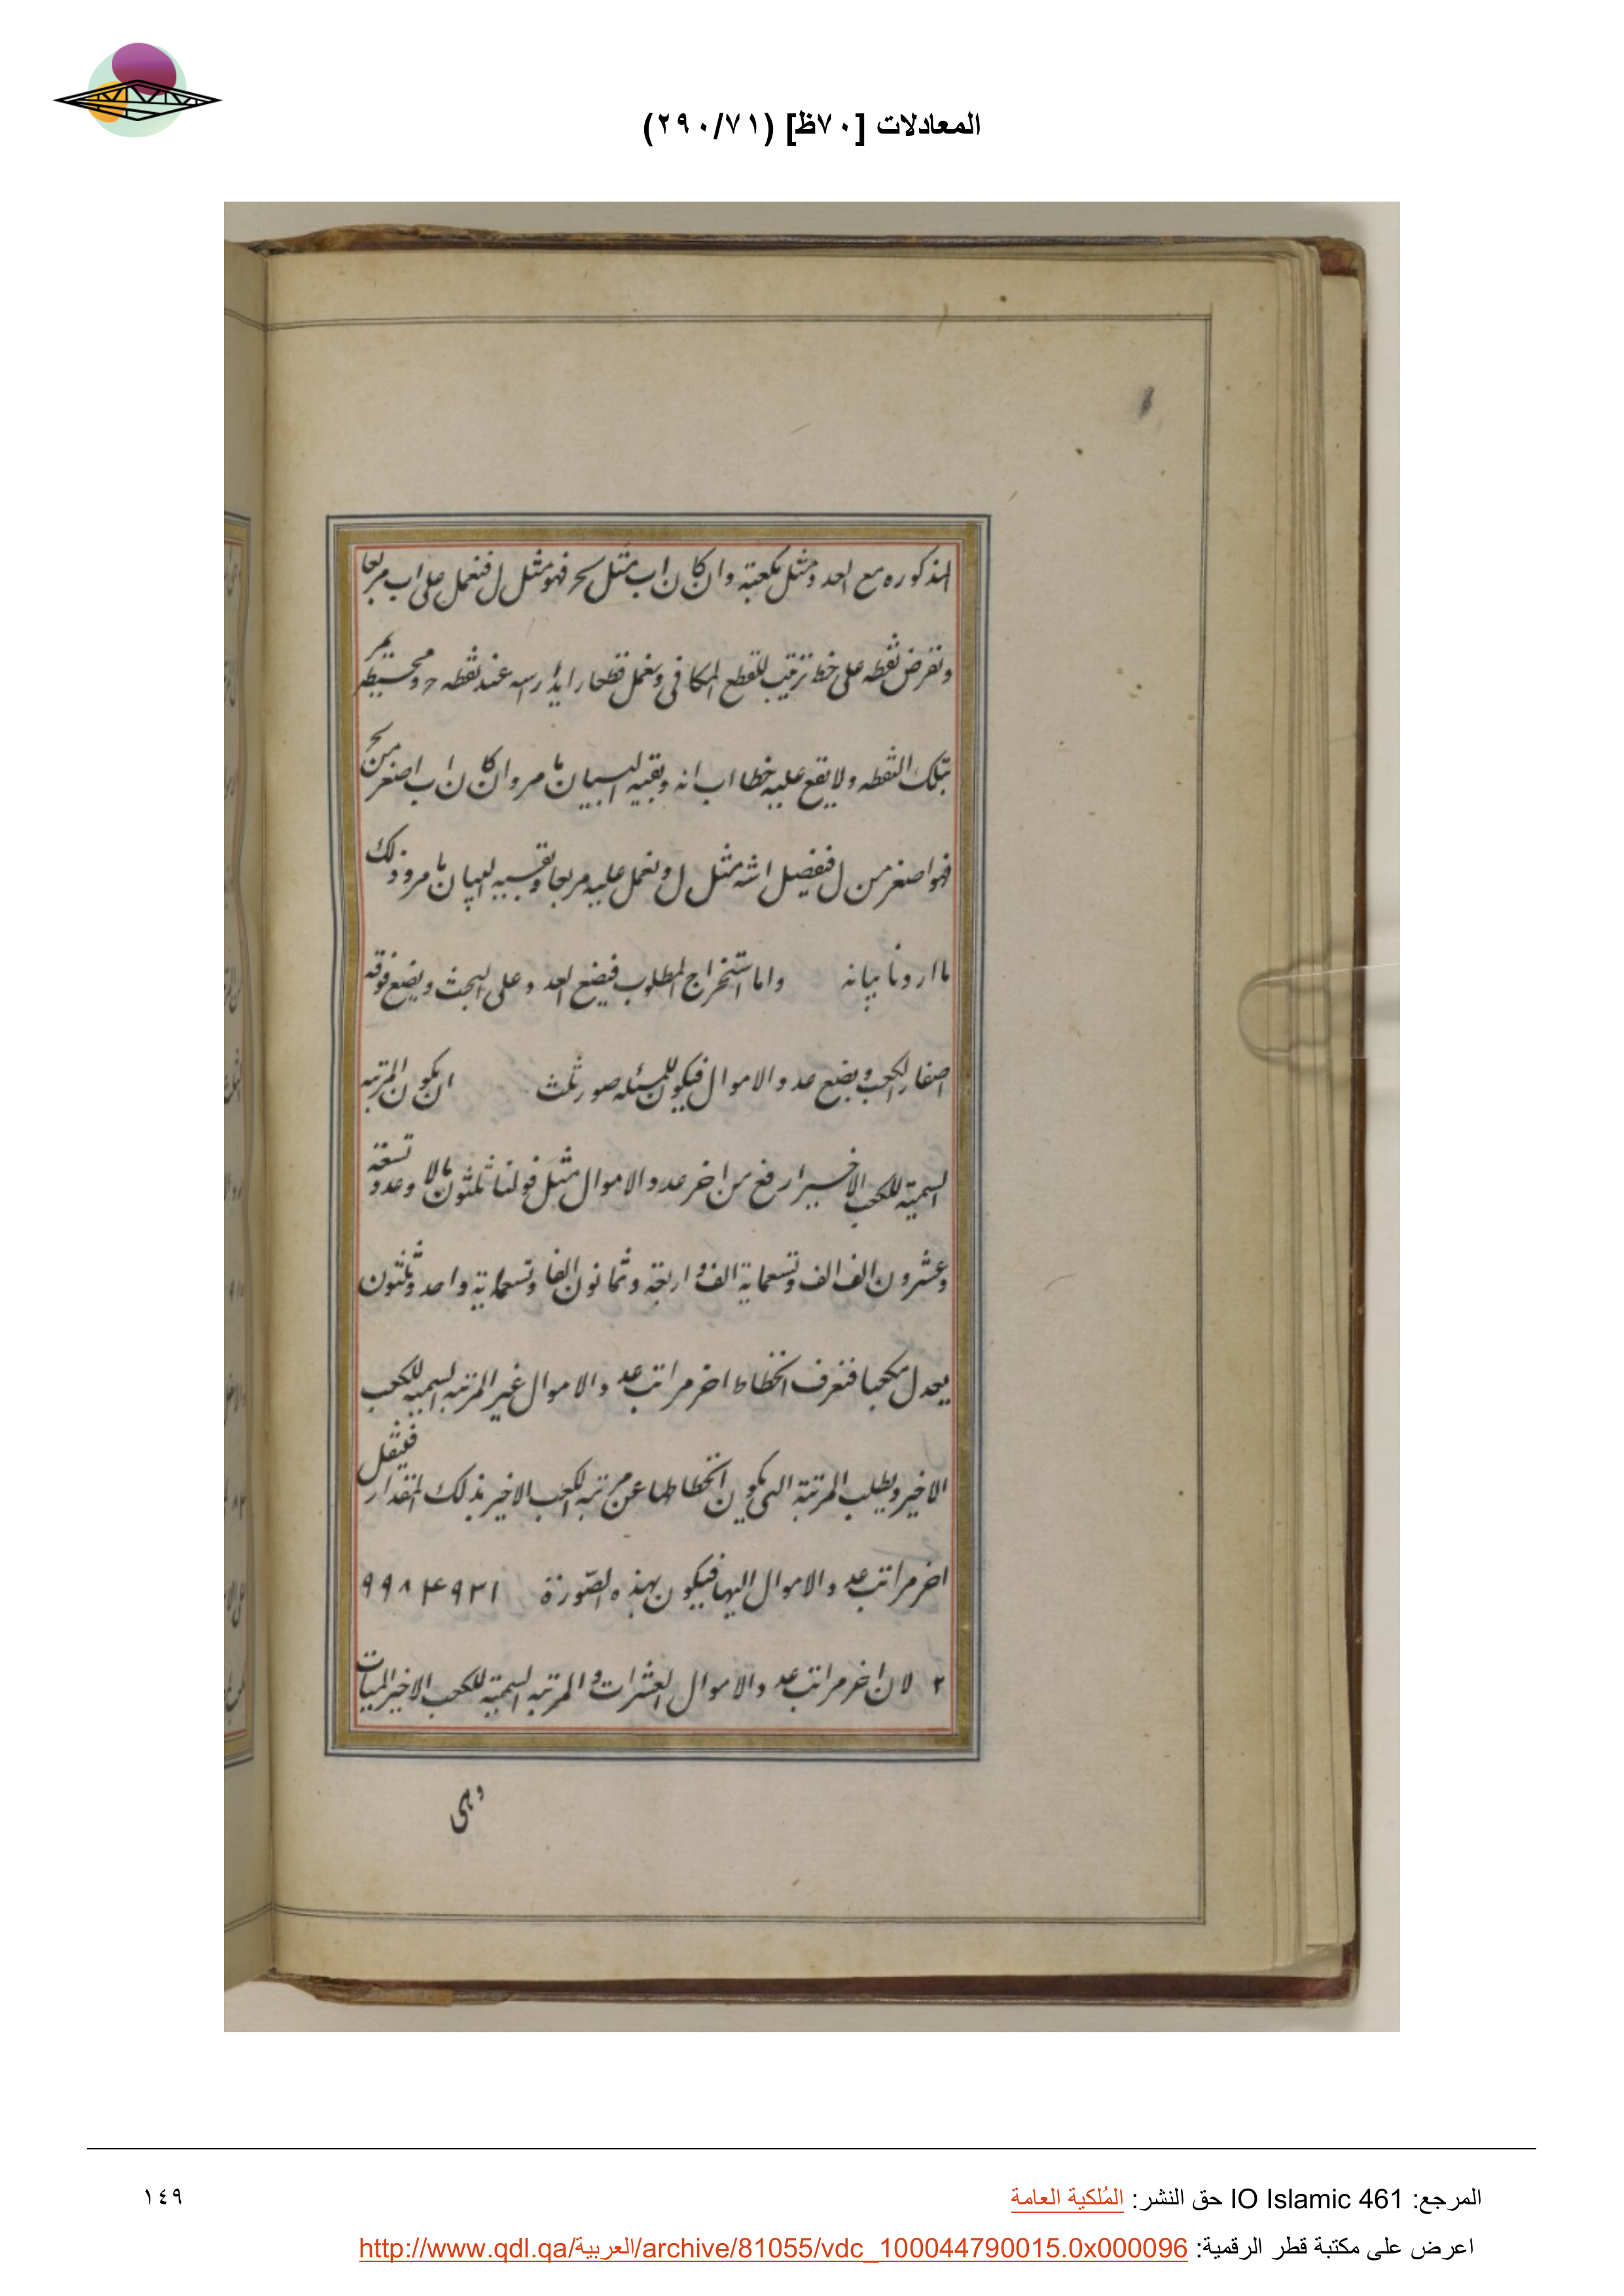 المعادلات [٧٠ظ] (٢٩٠/٧١)
المذكوره مع العدد ومثل مكعبته وان كان اب مثل سحر فهو مثل ل فنعمل على اب مربعا
ونفرض نقطه على خط ترتيب للقطع المكافى ونعمل قطعا رايدا راسه عند نقطه ح ومحيطه يمر
بتلك النقطه ولا يقع عليه خطا اب انه وبقيه البيان ما مر وان كان اب اصغر من سح
فهو اصغر من ل فنفصل اشه مثل ل ونعمل عليه مربعا وبقيه البيان ما مر وذلك
ما اردنا بيانه واما استخراج المطلوب فيضع العدد على البحث ويضع فوقه
اصفار الكعب ويضع عدد الاموال فيكون للمسئله صور ثلث ان يكون المرتبه
السميه للكعب الاخير ارفع من اخر عدد الاموال مثل قولنا ثلثون مالا وعدد تسعة
وعشرون الف الف وتسعماية الف و اربعة وثمانون الفا وتسعماية واحد وثلثون
يعدل مكعبا فنعرف انحطاط اخر مراتب عدد الاموال غير المرتبه السميه للكعب
الاخير ويطلب المرتبة التى يكون انحطاطها عن مرتبه الكعب الاخير بذلك المقدار فينقل
اخر مراتب عدد الاموال اليها فيكون بهذه الصّورة ٩٩٨٤٩٣١
٢ لان اخر مراتب عدد الاموال العشرات و المرتبه السميه للكعب الاخير الميات
وهى
المرجع: IO Islamic 461 حق النشر: المُلكية العامة
١٤٩
اعرض على مكتبة قطر الرقمية: http://www.qdl.qa/العربية/archive/81055/vdc_100044790015.0x000096